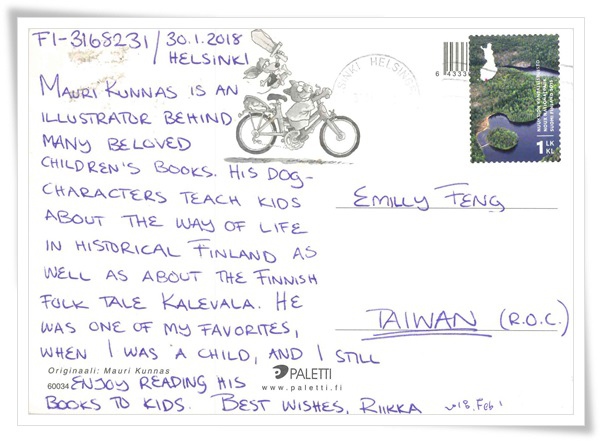 FI-3168231 / 30.1.2018
HELSINKI
MAURI KUNNAS IS AN
ILLUSTRATOR BEHIND
MANY BELOVED
CHILDREN'S BOOKS. HIS DOG-
CHARACTERS TEACH KIDS
ABOUT THE WAY OF LIFE
IN HISTORICAL FINLAND AS
WELL AS ABOUT THE FINNISH
FOLK TALE KALEVALA. HE
WAS ONE OF MY FAVORITES,
WHEN I WAS A CHILD, AND I STILL
ENJOY READING HIS
BOOKS TO KIDS. BEST WISHES, RIIKKA
Originaali: Mauri Kunnas
60034
PALETTI
www.paletti.fi
HELSINKI
6 43333
SUOMI FINLAND
1 LK
KL
EMILLY FENG
TAIWAN (R.O.C.)